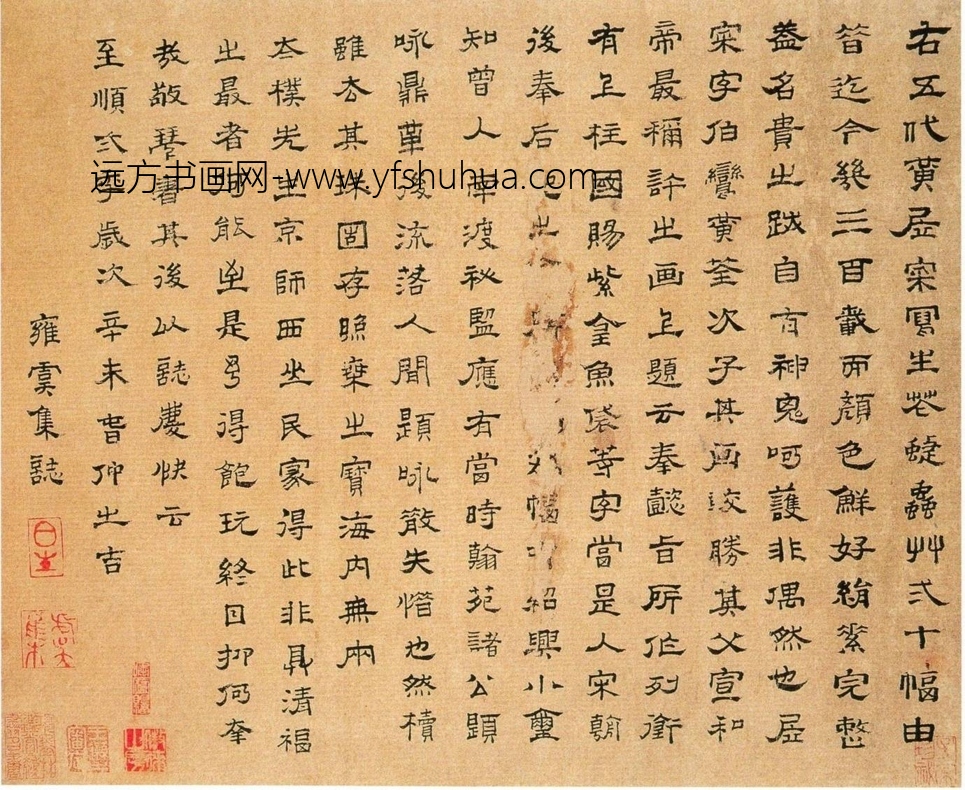 右五代黄居寀寫生花蜨蟲艸弍十幅由
昔迄今幾三百載而顔色鮮好絹素完整
葢名貴之跋自有神鬼呵護非偶然也居
寀字伯鸞黄荃次子其画設勝其父宣和
帝最稱許之画上題云奉懿旨所作列銜
有上柱國賜紫金魚袋等字當是人宋朝
後奉后 之 幅 紹興小璽
知曾人南渡祕監應有當時翰苑諸公題
咏鼎革後流落人間題咏散失惜也然櫝
雖去其珠固存照乗之寶海内無兩
太樸先生京師西坐民家得此非具清福
之最者 能 是 得飽玩終日抑何奎
敬 書其後以誌慶快云
至順 年歲次辛未 仰之吉
雍虞集誌
远方书画网-www.yfshuhua.com